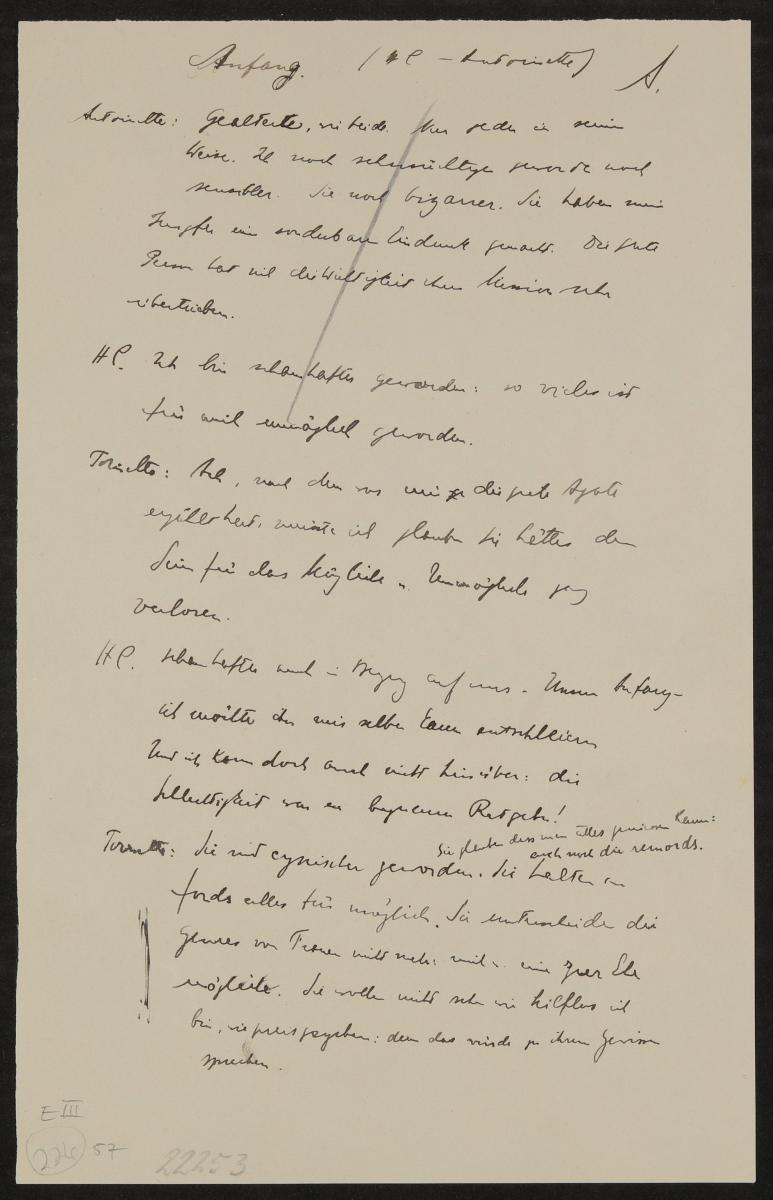 Anfang. (HC – Antoinette) A.
Antoinette: Gealterte, wir beide. Nur jeder in seiner
Weise. Ich noch sehnsüchtiger geworden noch
sensibler. Sie noch bizarrer. Sie haben meiner
Jungfer einen sonderbaren Eindruck gemacht. Die gute
Person hat mir die Wichtigkeit ihrer Mission sehr
übertrieben.
HC. Ich bin schamhafter geworden: so vieles ist
für mich unmöglich geworden.
Toinette: Ach, nach dem was mir die gute Agathe
erzählt hat, müsste ich glauben Sie hätten den
Sinn für das Mögliche u. Unmögliche ganz
verloren.
HC. schamhafter auch in Bezug auf uns. Unsern Anfang –
ich möchte ihn mir selber kaum entschleiern
Und ich kann doch auch nicht hinüber: die
Schlechtigkeit war ein bequemer Ratgeber!
Sie glauben dass man alles geniessen kann:
auch noch die remords.
Toinette: Sie sind cynischer geworden. Sie halten im
fonds alles für möglich. Sie unterscheiden die
Genres von Frauen nicht mehr: mit u. eine zur Ehe
mögliche. Sie wollen nicht sehn wie hilflos ich
bin, wie preisgegeben: denn das würde zu ihrem Gewissen
sprechen.
E III
226 57
22253